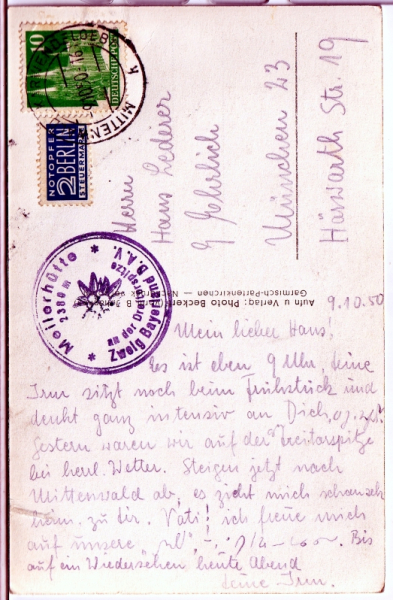 10
DEUTSCHE POST
NOTOPFER
2 BERLIN
STEUERMARKE
MITTEN
Herrn
Hans Lederer
b/ Ehrlich
München 23
Str. 19
Meilerhütte
2380 m
an der Dreitorspitze
Zweig Bayerland D.A.V.
Aufn u Verlag: Photo Beckert
Garmisch-Partenkirchen
9.10.50
Mein lieber Hans!
Es ist eben 9 Uhr, Deine
Irm sitzt noch beim Frühstück und
denkt ganz intensiv an Dich,
Gestern waren wir auf der Dreitorspitze
bei herrl. Wetter. Steigen jetzt nach
Mittenwald ab, es zieht mich schon
zu Dir. Vati! ich freue mich
auf unsere Bis
auf ein Wiedersehen heute Abend
Deine Irm.